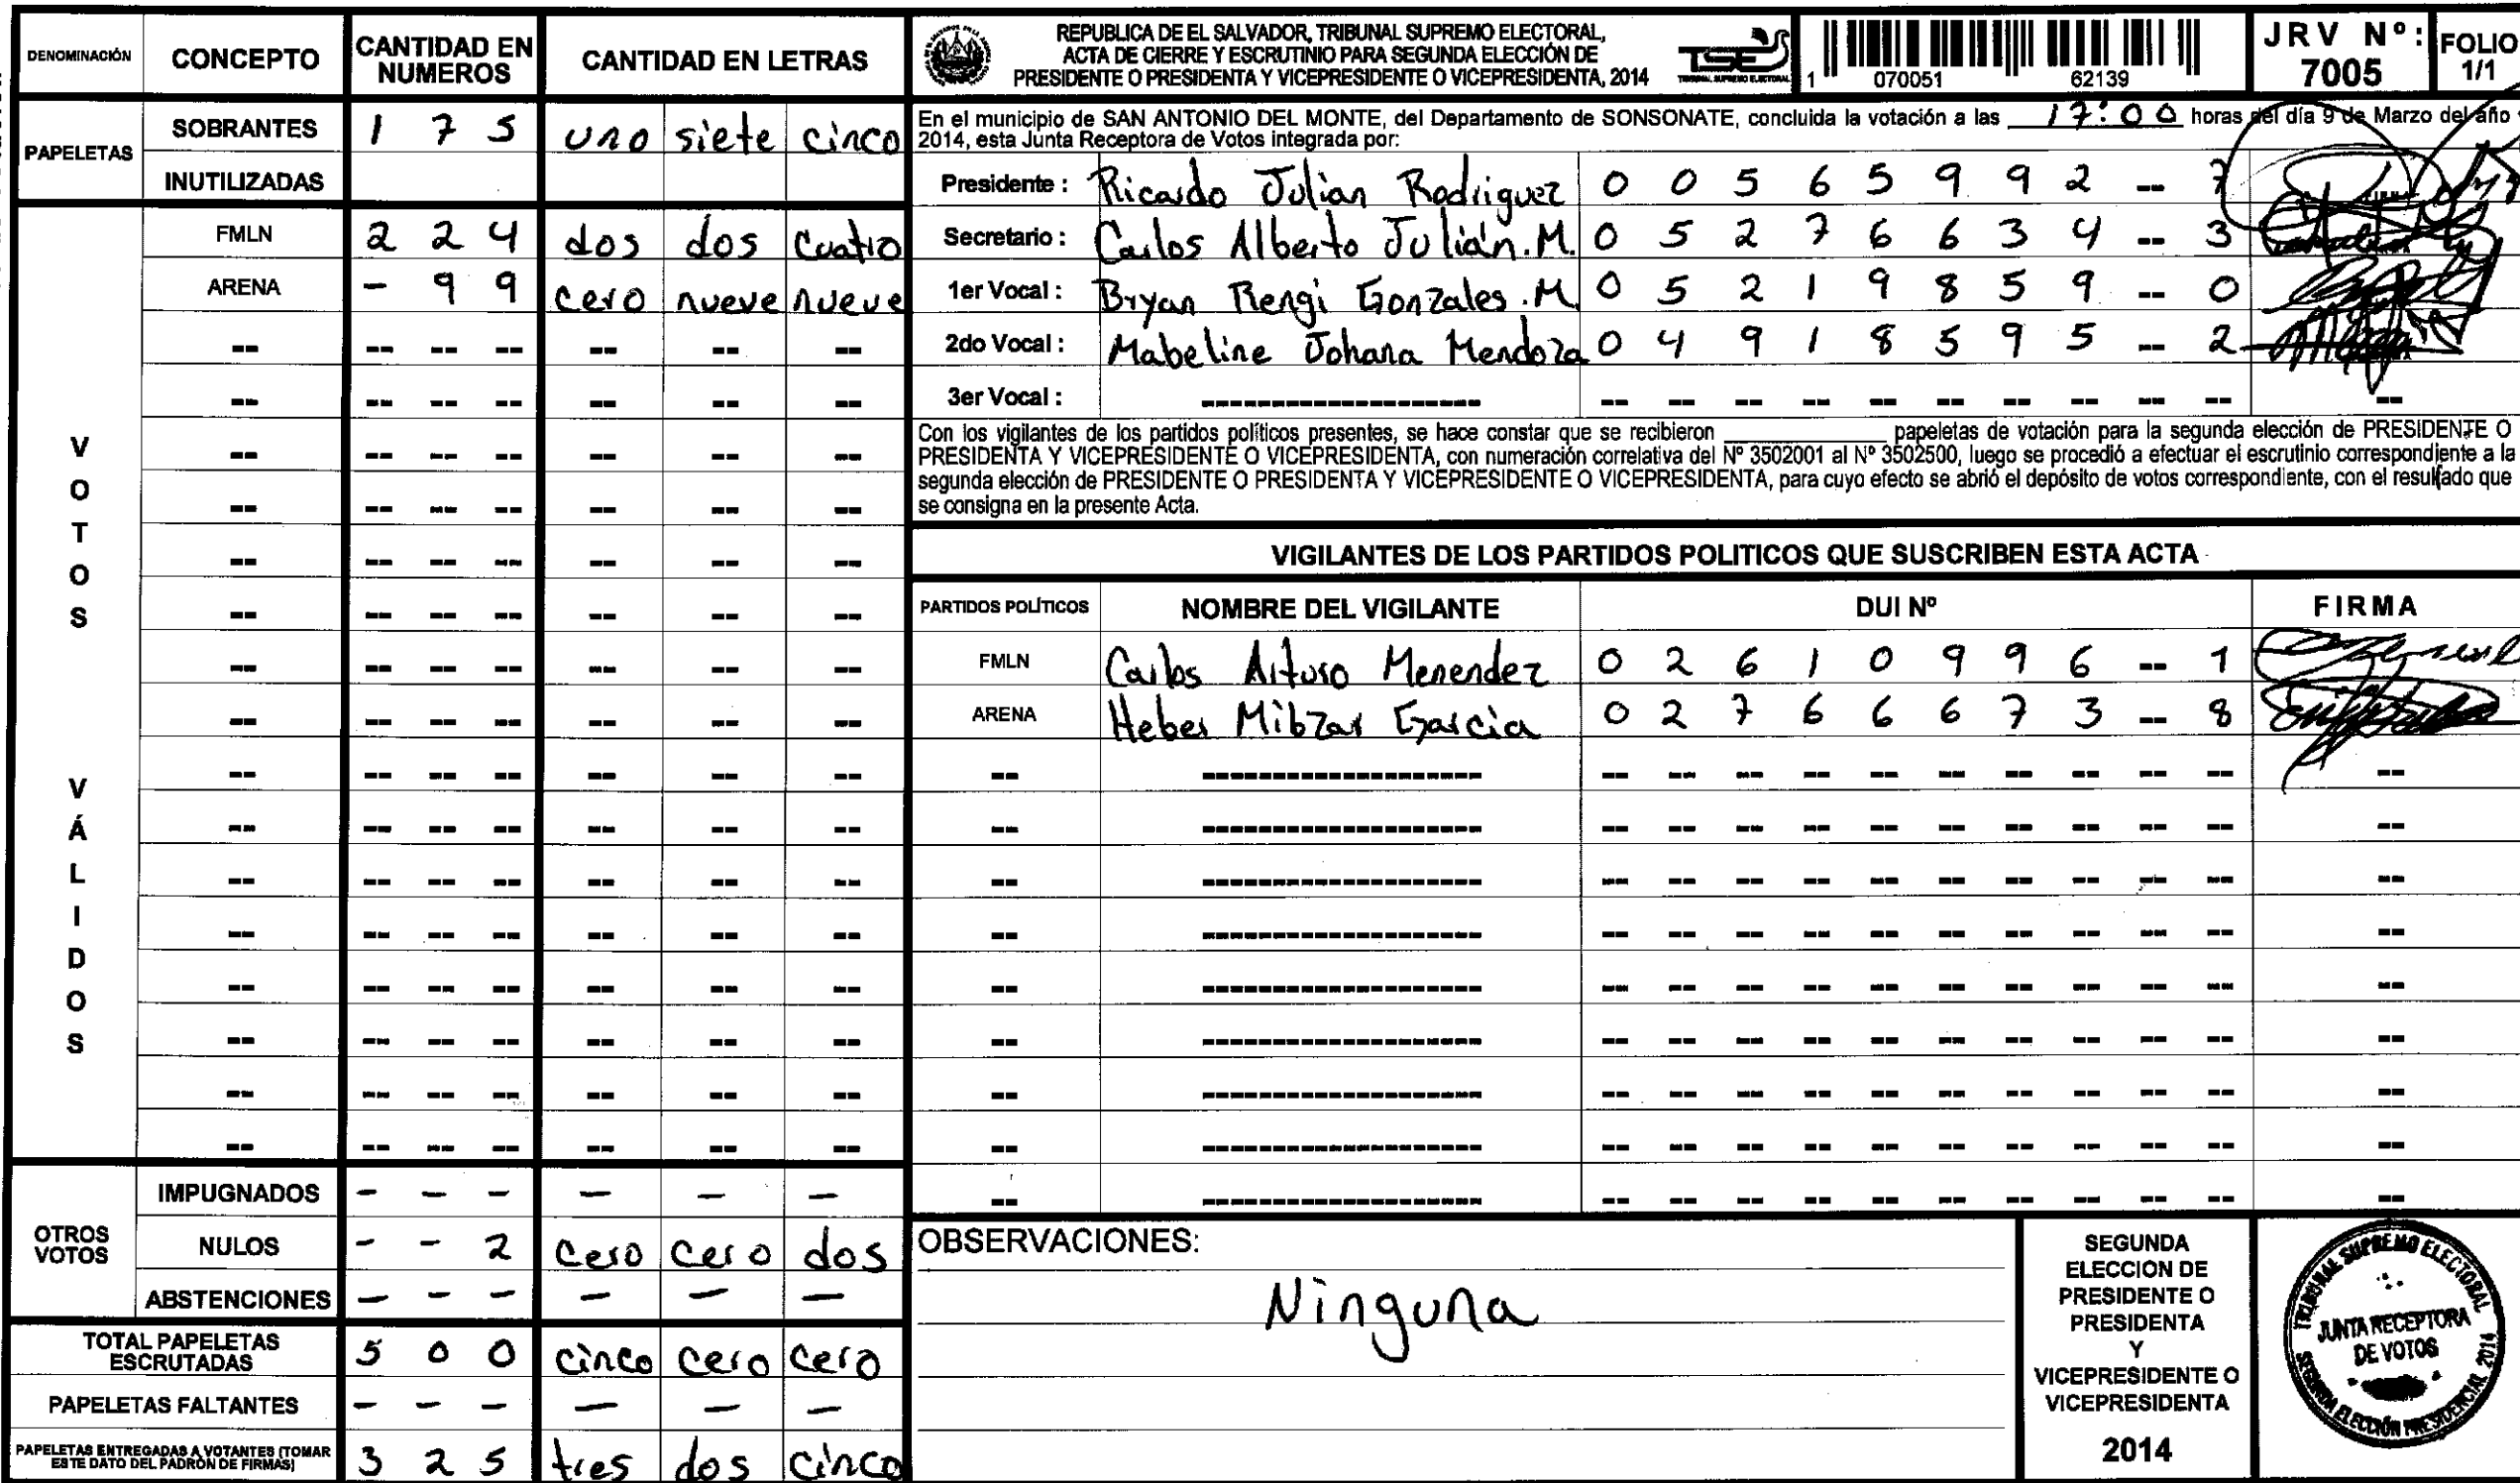 DENOMINACIÓN CONCEPTO CANTIDAD EN NUMEROS CANTIDAD EN LETRAS
PAPELETAS
SOBRANTES 1 7 5 uno siete cinco
INUTILIZADAS
VOTOS VÁLIDOS
FMLN 2 2 4 dos dos cuatro
ARENA - 9 9 cero nueve nueve
OTROS VOTOS
IMPUGNADOS - - - - - -
NULOS - - 2 cero cero dos
ABSTENCIONES - - - - - -
TOTAL PAPELETAS ESCRUTADAS 5 0 0 cinco cero cero
PAPELETAS FALTANTES - - - - - -
PAPELETAS ENTREGADAS A VOTANTES (TOMAR ESTE DATO DEL PADRÓN DE FIRMAS) 3 2 5 tres dos cinco
REPUBLICA DE EL SALVADOR, TRIBUNAL SUPREMO ELECTORAL,
ACTA DE CIERRE Y ESCRUTINIO PARA SEGUNDA ELECCIÓN DE
PRESIDENTE O PRESIDENTA Y VICEPRESIDENTE O VICEPRESIDENTA, 2014
TSE
TRIBUNAL SUPREMO ELECTORAL
1 070051 62139
JRV Nº: 7005
FOLIO 1/1
En el municipio de SAN ANTONIO DEL MONTE, del Departamento de SONSONATE, concluida la votación a las 17:00 horas del día 9 de Marzo del año
2014, esta Junta Receptora de Votos integrada por:
Presidente : Ricardo Julian Rodriguez 0 0 5 6 5 9 9 2 -- 7
Secretario : Carlos Alberto Julián.M. 0 5 2 7 6 6 3 4 -- 3
1er Vocal : Bryan Rengi Gonzales.M 0 5 2 1 9 8 5 9 -- 0
2do Vocal : Mabeline Johana Mendoza 0 4 9 1 8 5 9 5 -- 2
3er Vocal :
Con los vigilantes de los partidos políticos presentes, se hace constar que se recibieron ____ papeletas de votación para la segunda elección de PRESIDENTE O
PRESIDENTA Y VICEPRESIDENTE O VICEPRESIDENTA, con numeración correlativa del Nº 3502001 al Nº 3502500, luego se procedió a efectuar el escrutinio correspondiente a la
segunda elección de PRESIDENTE O PRESIDENTA Y VICEPRESIDENTE O VICEPRESIDENTA, para cuyo efecto se abrió el depósito de votos correspondiente, con el resultado que
se consigna en la presente Acta.
VIGILANTES DE LOS PARTIDOS POLITICOS QUE SUSCRIBEN ESTA ACTA
PARTIDOS POLÍTICOS NOMBRE DEL VIGILANTE DUI Nº FIRMA
FMLN Carlos Arturo Menendez 0 2 6 1 0 9 9 6 -- 1
ARENA Heber Mibzar Garcia 0 2 7 6 6 6 7 3 -- 8
OBSERVACIONES:
Ninguna
SEGUNDA
ELECCION DE
PRESIDENTE O
PRESIDENTA
Y
VICEPRESIDENTE O
VICEPRESIDENTA
2014
TRIBUNAL SUPREMO ELECTORAL
JUNTA RECEPTORA
DE VOTOS
SEGUNDA ELECCIÓN PRESIDENCIAL 2014